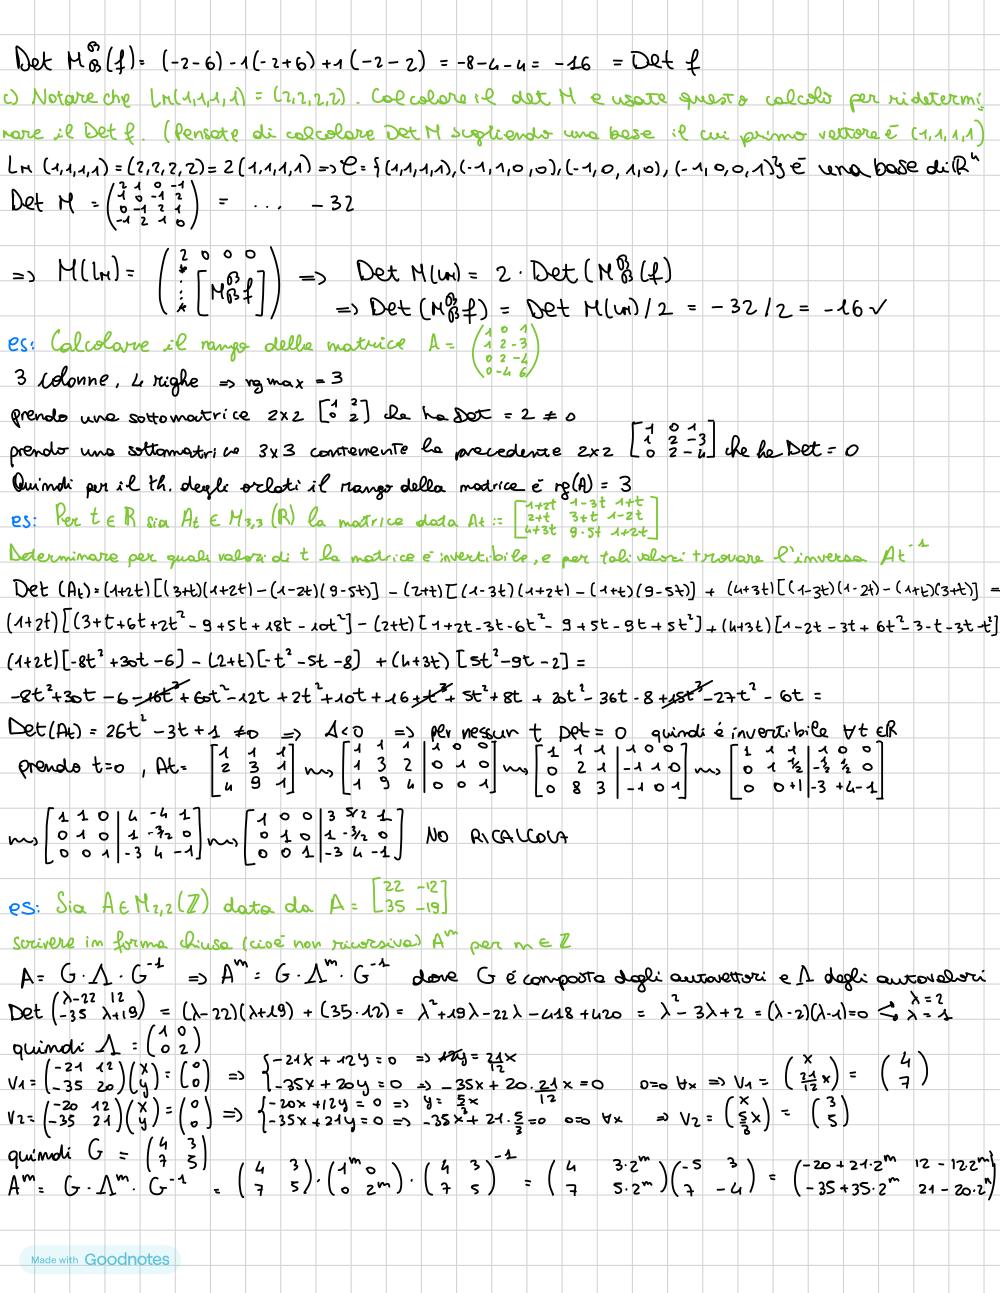 Det M^B_B(f) = (-2-6) -1(-2+6) +1(-2-2) = -8-4-4 = -16 = Det f
c) Notare che L_M(1,1,1,1) = (2,2,2,2). Calcolare il det M e usate questo calcolo per ridetermi
nare il Det f. (Pensate di calcolare Det M scegliendo una base il cui primo vettore è (1,1,1,1)
L_M (1,1,1,1) = (2,2,2,2) = 2(1,1,1,1) => C = {(1,1,1,1),(-1,1,0,0),(-1,0,1,0),(-1,0,0,1)} è una base di R^4
Det M = (2 1 0 -1 / 1 0 -1 2 / 0 -1 2 1 / -1 2 1 0) = ... -32
=> M(L_M) = (2 0 0 0 / * [M^B_B f]) => Det M(L_M) = 2 · Det (M^B_B (f)
=> Det (M^B_B f) = Det M(L_M)/2 = -32/2 = -16 ✓
es: Calcolare il rango della matrice A = (1 0 1 / 1 2 -3 / 0 2 -4 / 0 -4 6)
3 colonne, 4 righe => rg max = 3
prendo una sottomatrice 2x2 [1 2 / 0 2] che ha Det = 2 ≠ 0
prendo una sottomatrice 3x3 contenente la precedente 2x2 [1 0 1 / 1 2 -3 / 0 2 -4] che ha Det = 0
Quindi per il th. degli orlati il rango della matrice è rg(A) = 3
es: Per t ∈ R sia At ∈ M3,3 (R) la matrice data At := [1+2t 1-3t 1+t / 2+t 3+t 1-2t / 4+3t 9-5t 1+2t]
Determinare per quali valori di t la matrice è invertibile, e per tali valori trovare l'inversa At^-1
Det (At) = (1+2t)[(3+t)(1+2t) - (1-2t)(9-5t)] - (2+t)[(1-3t)(1+2t) - (1+t)(9-5t)] + (4+3t)[(1-3t)(1-2t) - (1+t)(3+t)] =
(1+2t)[(3+t+6t+2t² - 9+5t+18t - 10t²] - (2+t)[1+2t-3t-6t² - 9+5t-9t+5t²] + (4+3t)[1-2t-3t+6t²-3-t-3t-t²]
(1+2t)[-8t²+30t-6] - (2+t)[-t²-5t-8] + (4+3t)[5t²-9t-2] =
-8t²+30t-6-16t³+60t²-12t+2t²+10t+16+t³+5t²+8t+20t²-36t-8+15t³-27t²-6t =
Det(At) = 26t²-3t+1 ≠0 => Δ<0 => per nessun t Det=0 quindi è invertibile ∀t∈R
prendo t=0, At= [1 1 1 / 2 3 1 / 4 9 1] ⇝ [1 1 1 | 1 0 0 / 1 3 2 | 0 1 0 / 1 9 4 | 0 0 1] ⇝ [1 1 1 | 1 0 0 / 0 2 1 | -1 1 0 / 0 8 3 | -1 0 1] ⇝ [1 1 1 | 1 0 0 / 0 1 ½ | -½ ½ 0 / 0 0 +1 | -3 +4 -1]
⇝ [1 1 0 | 4 -4 1 / 0 1 0 | 1 -3/2 0 / 0 0 1 | -3 4 -1] ⇝ [1 0 0 | 3 5/2 1 / 0 1 0 | 1 -3/2 0 / 0 0 1 | -3 4 -1] NO RICALCOLA
es: Sia A ∈ M2,2 (Z) data da A = [22 -12 / 35 -19]
scrivere in forma chiusa (cioè non ricorsiva) A^m per m ∈ Z
A = G·Λ·G^-1 => A^m = G·Λ^m·G^-1 dove G è composta dagli autovettori e Λ degli autovalori
Det (λ-22 12 / -35 λ+19) = (λ-22)(λ+19) + (35·12) = λ²+19λ-22λ-418+420 = λ²-3λ+2 = (λ-2)(λ-1)=0 < λ=2 / λ=1
quindi Λ = (1 0 / 0 2)
V1= (-21 12 / -35 20)(x / y) = (0 / 0) => {-21x+12y=0 => 12y= 21/12 x / -35x+20y=0 => -35x+20·21/12 x=0 0=0 ∀x => V1 = (x / 21/12 x) = (4 / 7)
V2= (-20 12 / -35 21)(x / y) = (0 / 0) => {-20x+12y=0 => y= 5/3 x / -35x+21y=0 => -35x+21·5/3=0 0=0 ∀x => V2 = (x / 5/3 x) = (3 / 5)
quindi G = (4 3 / 7 5)
A^m = G·Λ^m·G^-1 = (4 3 / 7 5)·(1^m 0 / 0 2^m)·(4 3 / 7 5)^-1 = (4 3·2^m / 7 5·2^m)(-5 3 / 7 -4) = (-20+21·2^m 12-12·2^m / -35+35·2^m 21-20·2^m)
Made with Goodnotes